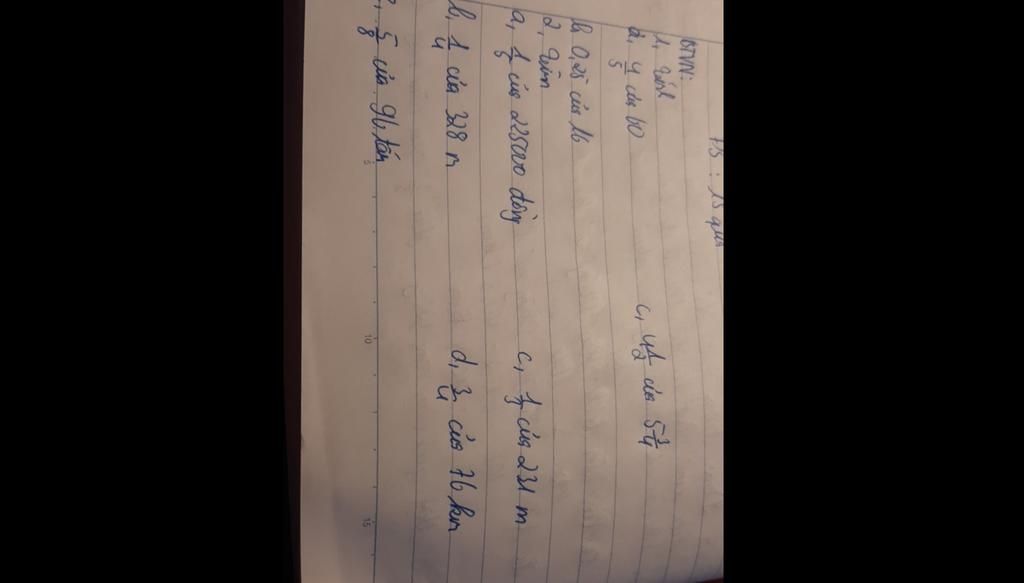 PS : 15 quả
BTVN:
1,
a, 4/5 của 60
c, 4 1/2 của 5 3/4
b, 0,25 của 16
2, Tìm
a, 1/5 của 225000 đồng
c, 1/3 của 231 m
b, 1/4 của 328 m
d, 3/4 của 76 km
5/8 của 96 tấn
5
10
15